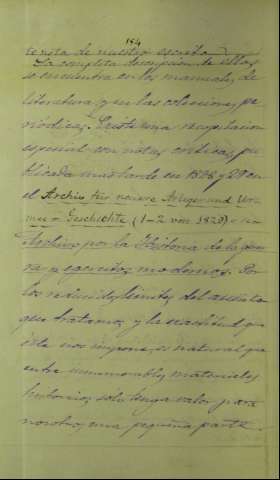 154
revista de nuestro escrito.
La completa descripción de ellos
se encuentra en los manuales de
literatura y en las colecciones pe
riódicas. Existe una recopilacion
especial con notas criticas, pu
blicada mas tarde en 1828 y 29 en
el Archiv für neuere Krieger und Ar
mee = Geschichte (1-2 von 1829) o sea
Archivo por la Historia de la guer
ra y egercitos modernos. Por
los reducidos limites del asunto
que tratamos y la exactitud que
este nos impone, es natural que
entre innumerables materiales
historicos solo tenga valor para
nosotros una pequeña parte.